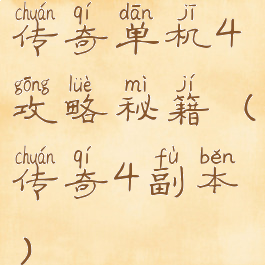 chuán qí dān jī
传奇单机4
gōng lüè mì jí
攻略秘籍(
chuán qí fù běn
传奇4副本
)